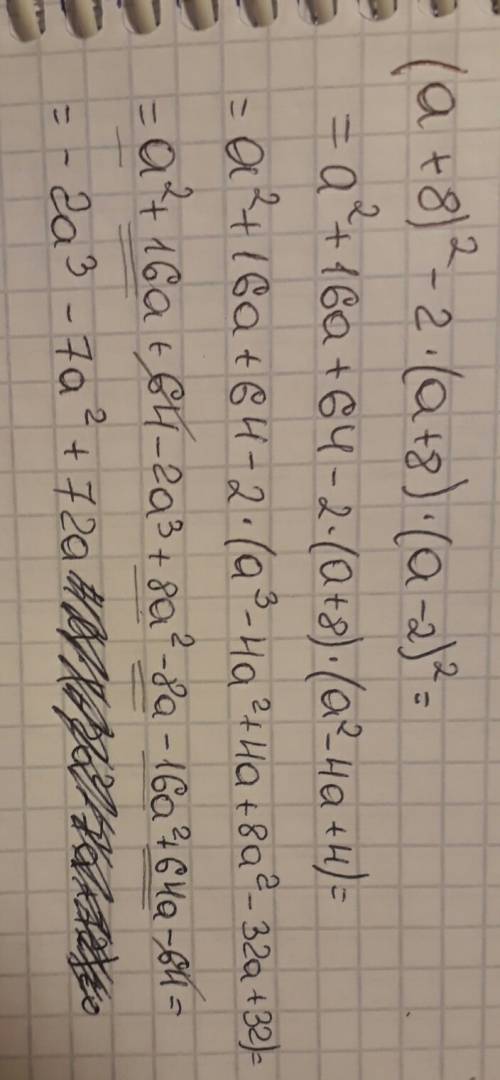 (a + 8)² - 2 · (a + 8) · (a - 2)² =
= a² + 16a + 64 - 2 · (a + 8) · (a² - 4a + 4) =
= a² + 16a + 64 - 2 · (a³ - 4a² + 4a + 8a² - 32a + 32) =
= a² + 16a + 64 - 2a³ + 8a² - 8a - 16a² + 64a - 64 =
= - 2a³ - 7a² + 72a